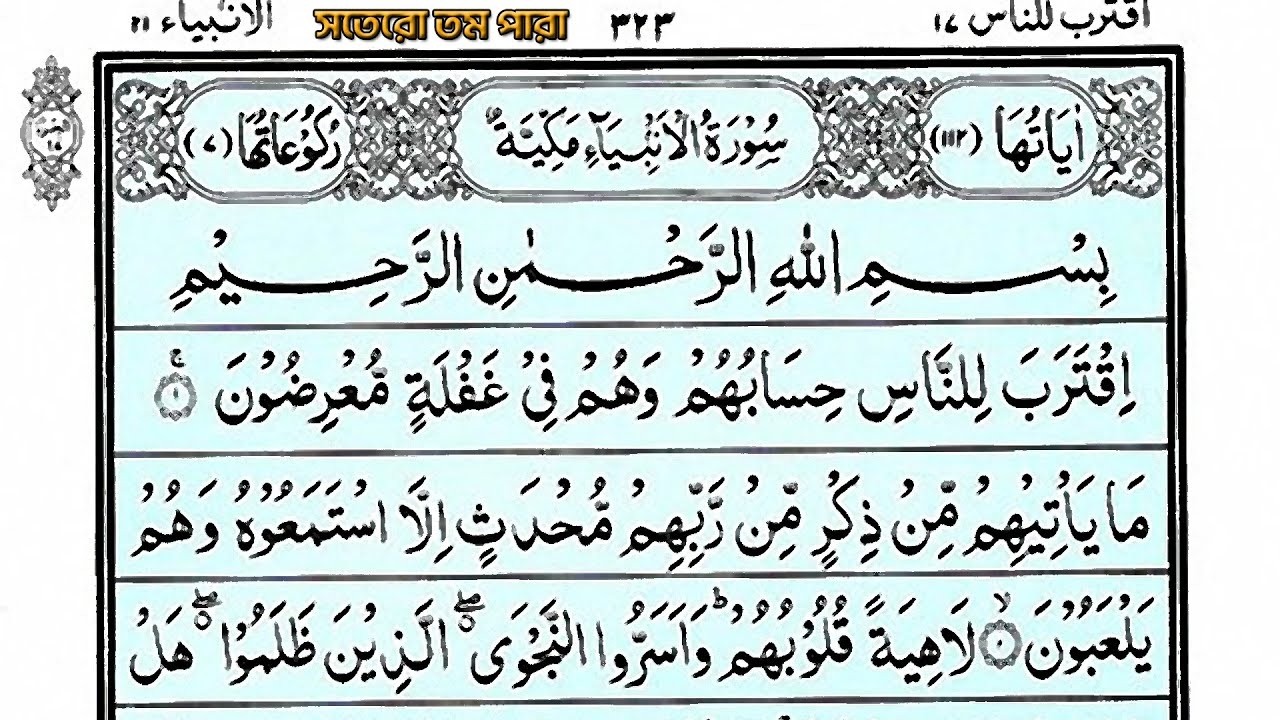 اقترب للناس ١٧ ٣٢٣ সতেরো তম পারা الانبیاء ٢١
اٰیَاتُهَا (١١٢) سُوْرَةُ الْاَنْۢبِیَآءِ مَكِّیَّةٌ رُكُوْعَاتُهَا (٧)
بِسْمِ اللهِ الرَّحْمٰنِ الرَّحِیْمِ
اِقْتَرَبَ لِلنَّاسِ حِسَابُهُمْ وَهُمْ فِیْ غَفْلَةٍ مُّعْرِضُوْنَ ۚ ١
مَا یَاْتِیْهِمْ مِّنْ ذِكْرٍ مِّنْ رَّبِّهِمْ مُّحْدَثٍ اِلَّا اسْتَمَعُوْهُ وَهُمْ
یَلْعَبُوْنَ ۙ ٢ لَاهِیَةً قُلُوْبُهُمْ ؕ وَاَسَرُّوا النَّجْوَی ۖۗ الَّذِیْنَ ظَلَمُوْا ۖۗ هَلْ